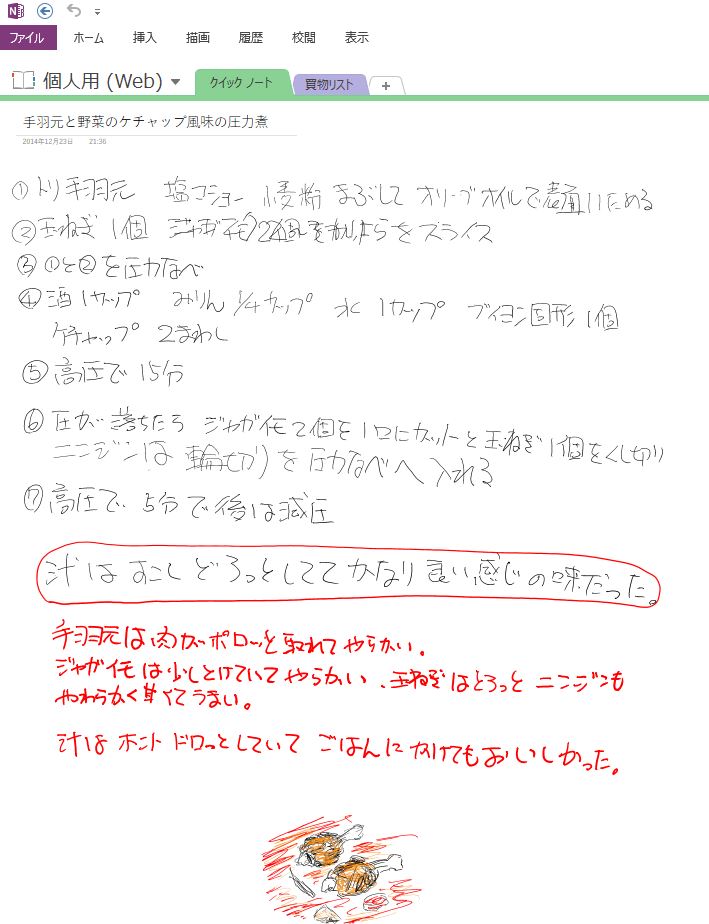 ファイル ホーム 挿入 描画 履歴 校閲 表示
個人用 (Web) クイック ノート 買物リスト +
手羽元と野菜のケチャップ風味の圧力煮
2014年12月23日 21:36
① トリ手羽元 塩コショー 小麦粉 まぶして オリーブオイルで表面いためる
② 玉ねぎ 1個 ジャガイモ をスライス
③ ①と②を圧力なべ
④ 酒1カップ みりん 1/4カップ 水 1カップ ブイヨン固形 1個
ケチャップ 2まわし
⑤ 高圧で 15分
⑥ 圧が落ちたら ジャガイモ2個を1口にカットと玉ねぎ1個をくし切り
ニンジンは 輪切りを圧力なべへ 入れる
⑦ 高圧で 5分で後は減圧
汁は すこし どろっとしてて かなり 良い感じの味だった。
手羽元は肉がポロッと取れてやらかい。
ジャガイモは少しとけていてやらかい、玉ねぎはとろっと ニンジンも
やわらかく甘くてうまい。
汁は ホント ドロっとしていて ごはんに かけてもおいしかった。